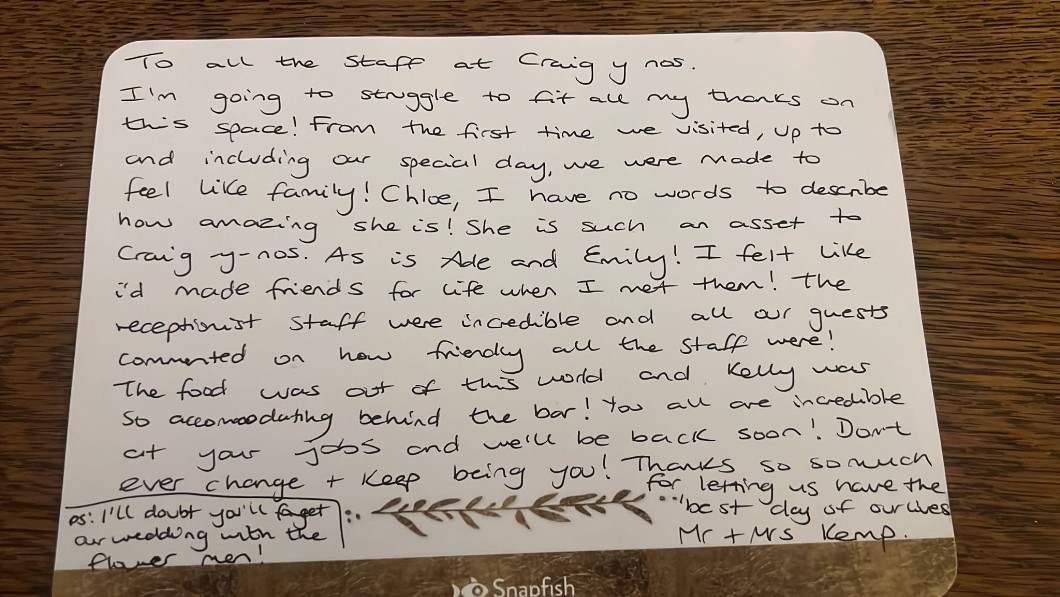 To all the staff at Craig y nos.
I'm going to struggle to fit all my thanks on
this space! From the first time we visited, up to
and including our special day, we were made to
feel like family! Chloe, I have no words to describe
how amazing she is! She is such an asset to
Craig y-nos. As is Ade and Emily! I felt like
i'd made friends for life when I met them! The
receptionist staff were incredible and all our guests
commented on how friendly all the staff were!
The food was out of this world and Kelly was
so accomodating behind the bar! You all are incredible
at your jobs and we'll be back soon! Don't
ever change + keep being you! Thanks so so much
for letting us have the
best day of our lives
Mr + Mrs Kemp.
ps: I'll doubt you'll forget
our wedding with the
flower men!
Snapfish